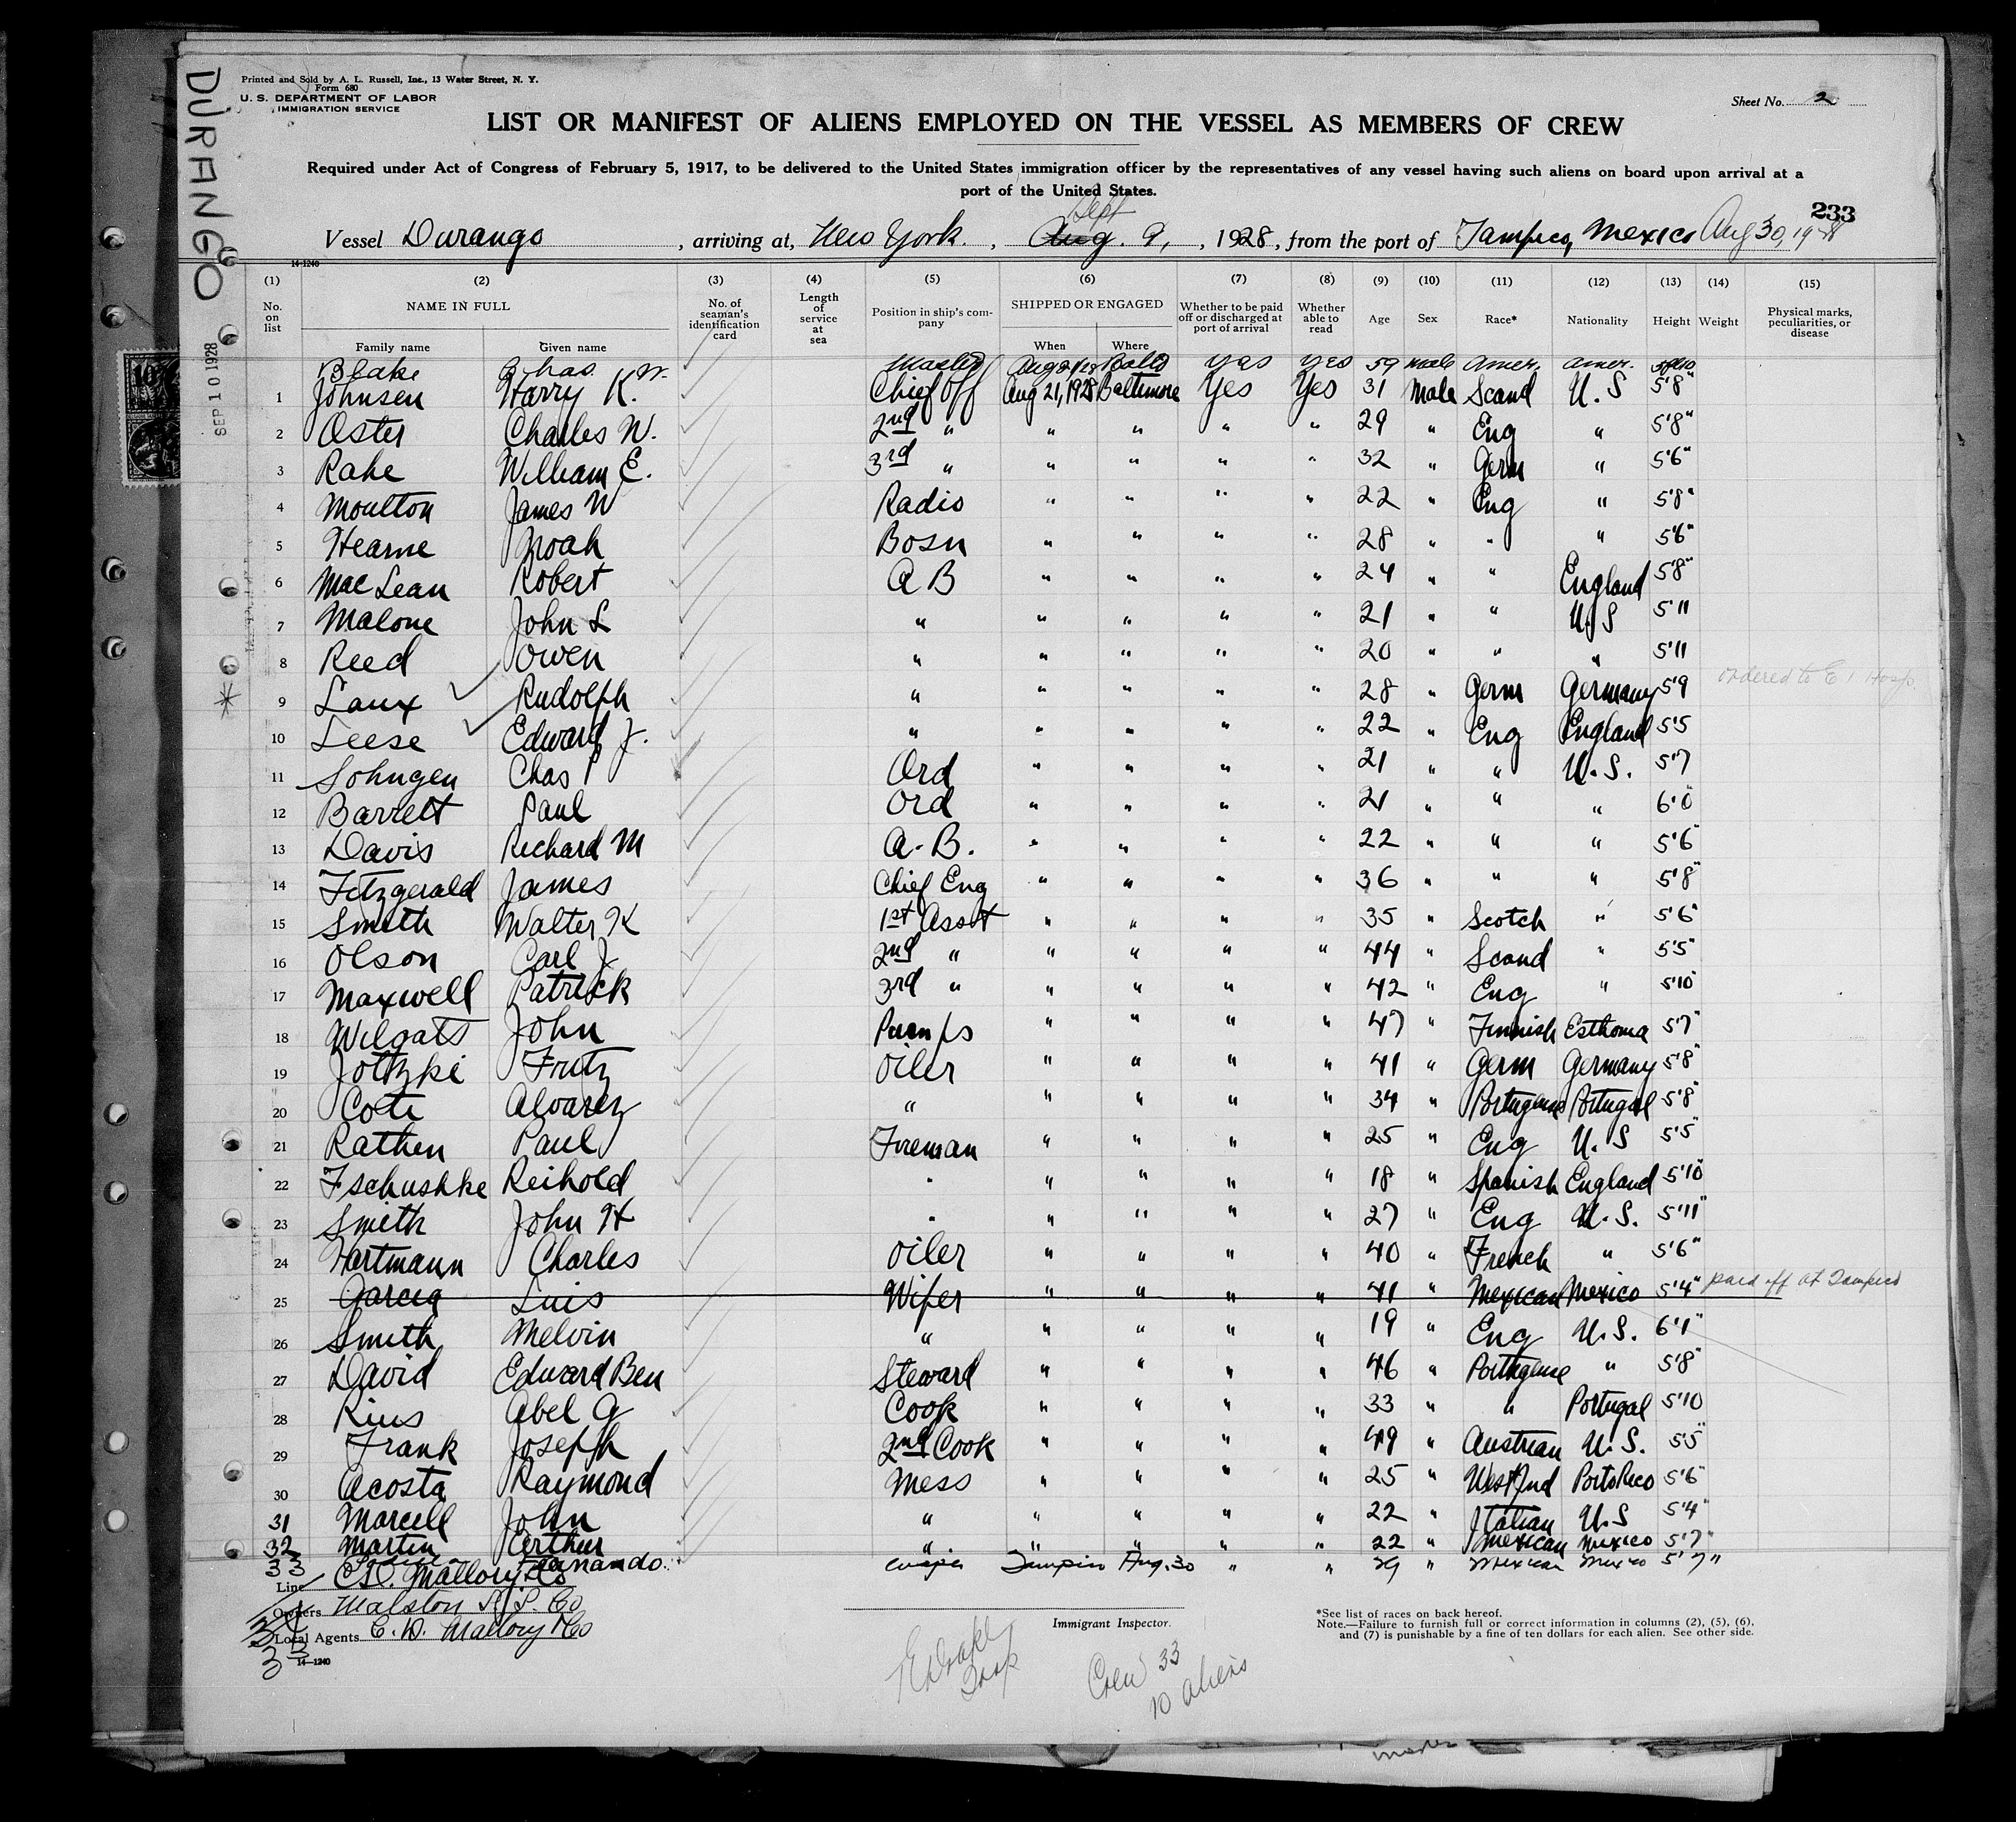 DURANGO
SEP 10 1928
Printed and Sold by A. L. Russell, Inc., 13 Water Street, N. Y.
Form 680
U. S. DEPARTMENT OF LABOR
IMMIGRATION SERVICE
Sheet No. 2
LIST OR MANIFEST OF ALIENS EMPLOYED ON THE VESSEL AS MEMBERS OF CREW
Required under Act of Congress of February 5, 1917, to be delivered to the United States immigration officer by the representatives of any vessel having such aliens on board upon arrival at a
port of the United States.
233
Sept
Vessel Durango, arriving at, New York, Aug. 9, 1928, from the port of Tampico, Mexico Aug 30, 1928
14-1240
(1) (2) (3) (4) (5) (6) (7) (8) (9) (10) (11) (12) (13) (14) (15)
No. on list NAME IN FULL No. of seaman's identification card Length of service at sea Position in ship's company SHIPPED OR ENGAGED Whether to be paid off or discharged at port of arrival Whether able to read Age Sex Race* Nationality Height Weight Physical marks, peculiarities, or disease
Family name Given name When Where
Blake Chas. W. Master Aug 21/28 Balto yes yes 59 male Amer. Amer.
1 Johnsen Harry K. Chief Off Aug 21, 1928 Baltimore Yes Yes 31 Male Scand U.S 5'8"
2 Oster Charles W. 2nd " " " " " 29 " Eng " 5'8"
3 Rahe William E. 3rd " " " " " 32 " Germ " 5'6"
4 Moulton James W Radio " " " " 22 " Eng " 5'8"
5 Hearne Noah Bosn " " " " 28 " " " 5'6"
6 MacLean Robert A B " " " " 24 " " England 5'8"
7 Malone John L " " " " " 21 " " U.S 5'11
8 Reed Owen " " " " " 20 " " " 5'11
9 Laux Rudolph " " " " " 28 " Germ Germany 5'9 ordered to E I Hosp
10 Leese Edward J. " " " " " 22 " Eng England 5'5
11 Sohngen Chas P Ord " " " " 21 " " U.S. 5'7
12 Barrett Paul Ord " " " " 21 " " " 6'0
13 Davis Richard M A.B. " " " " 22 " " " 5'6
14 Fitzgerald James Chief Eng " " " " 36 " " " 5'8"
15 Smith Walter K 1st Asst " " " " 35 " Scotch " 5'6"
16 Olson Carl J. 2nd " " " " " 44 " Scand " 5'5"
17 Maxwell Patrick 3rd " " " " " 42 " Eng " 5'10
18 Wilgats John Pumps " " " " 47 " Finnish Esthonia 5'7"
19 Jotzke Fritz Oiler " " " " 41 " Germ Germany 5'8"
20 Cote Alvarez " " " " " 34 " Portuguese Portugal 5'8"
21 Rathen Paul Fireman " " " " 25 " Eng U.S 5'5"
22 Fschushke Reihold " " " " " 18 " Spanish England 5'10"
23 Smith John H " " " " " 27 " Eng U.S. 5'11"
24 Hartmann Charles Oiler " " " " 40 " French " 5'6"
25 Garcia Luis Wiper " " " " 41 " Mexican Mexico 5'4" paid off at Tampico
26 Smith Melvin " " " " " 19 " Eng U.S. 6'1"
27 David Edward Ben Steward " " " " 46 " Portuguese " 5'8"
28 Rius Abel G Cook " " " " 33 " " Portugal 5'10
29 Frank Joseph 2nd Cook " " " " 49 " Austrian U.S. 5'5
30 Acosta Raymond Mess " " " " 25 " West Ind Porto Rico 5'6"
31 Marcell John " " " " " 22 " Italian U.S 5'4"
32 Martin Arthur " " " " " 22 " Mexican Mexico 5'7"
33 Fernando wiper Tampico Aug. 30 " " 29 " Mexican Mexico 5'7"
Line C.D. Mallory & Co
Owners Malston S.S. Co
Local Agents C. D. Mallory & Co
33
14—1240
Immigrant Inspector.
Crew 33
10 aliens
*See list of races on back hereof.
Note.—Failure to furnish full or correct information in columns (2), (5), (6),
and (7) is punishable by a fine of ten dollars for each alien. See other side.